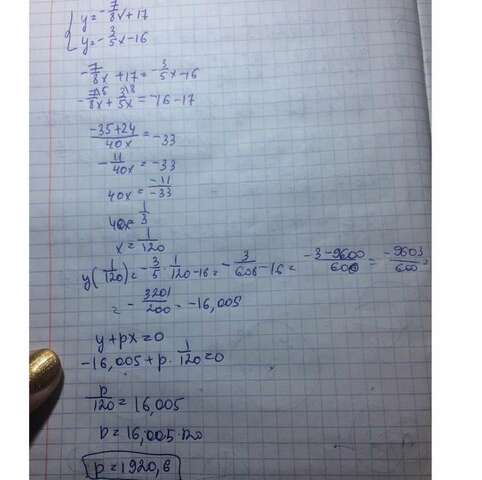 { y = -7/8x + 17
y = -3/5x - 16
-7/8x + 17 = -3/5x - 16
-7\5/8x + 3\8/5x = -16 - 17
-35+24/40x = -33
-11/40x = -33
40x = -11/-33
40x = 1/3
x = 1/120
y(1/120) = -3/5 · 1/120 - 16 = -3/600 - 16 = -3-9600/600 = -9603/600 =
= -3201/200 = -16,005
y + px = 0
-16,005 + p · 1/120 = 0
p/120 = 16,005
p = 16,005 · 120
p = 1920,6